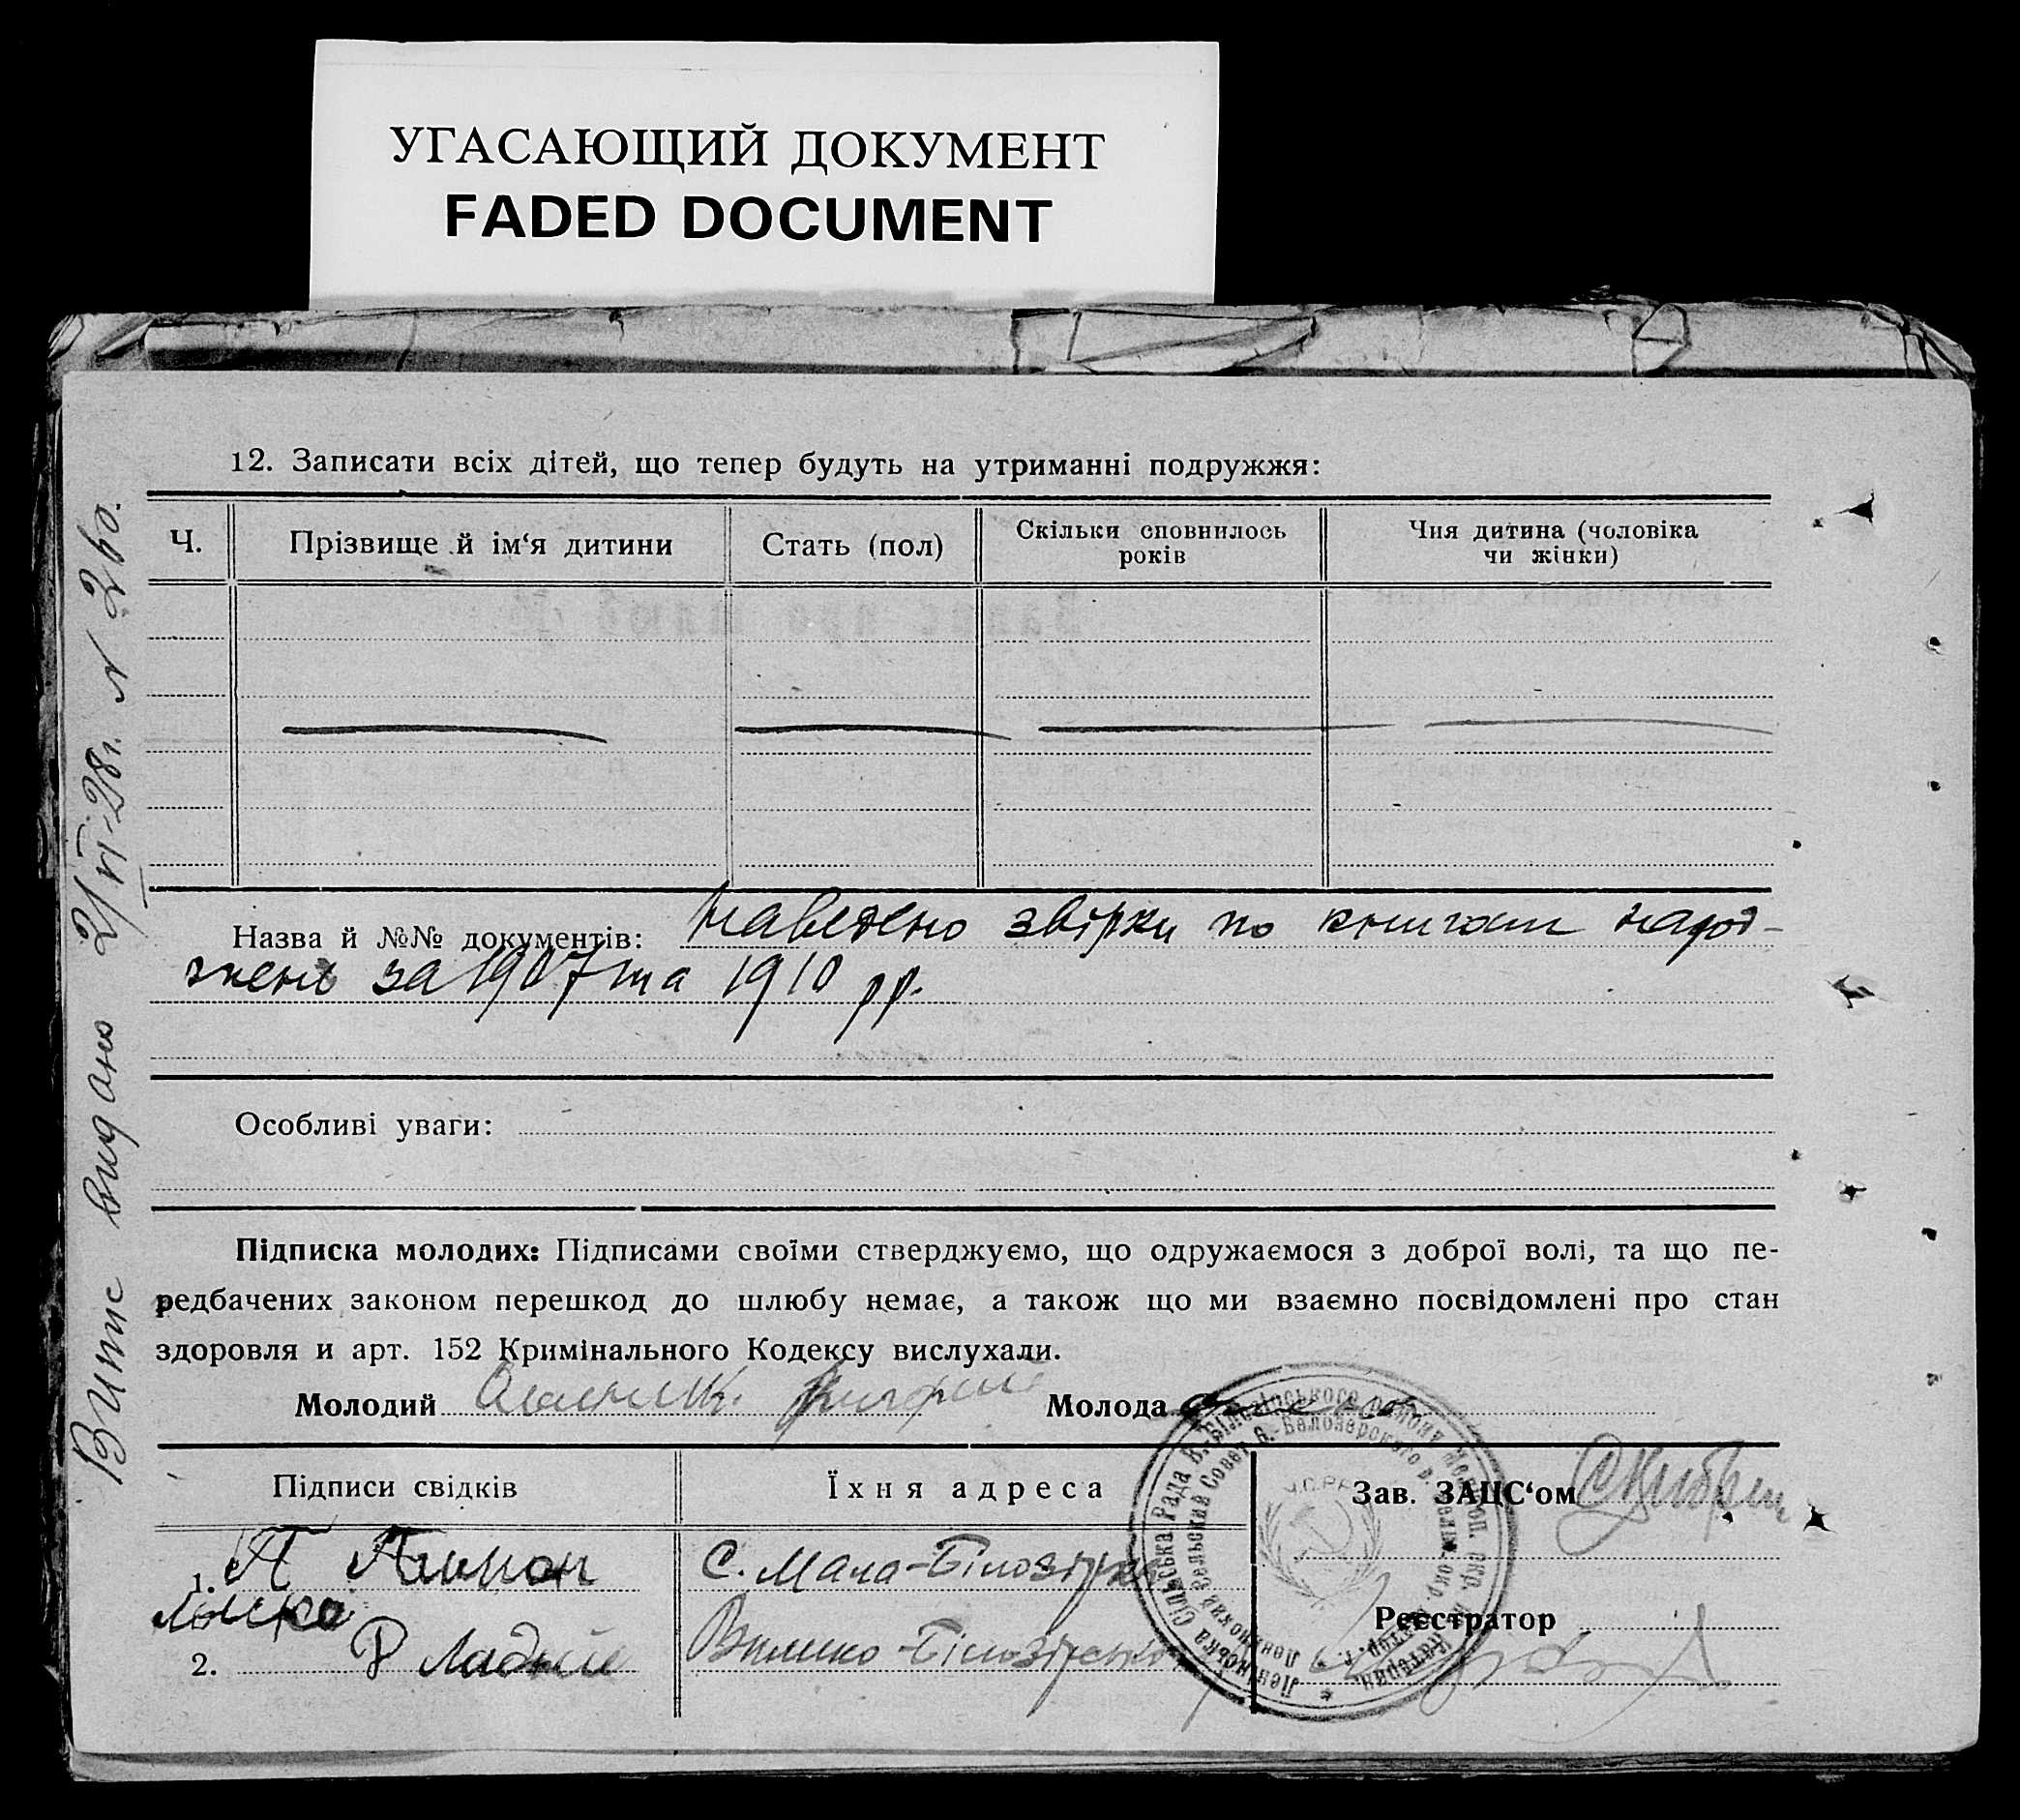 УГАСАЮЩИЙ ДОКУМЕНТ
FADED DOCUMENT
12. Записати всіх дітей, що тепер будуть на утриманні подружжя:
Ч.
Прізвище й ім‘я дитини
Стать (пол)
Скільки сповнилось
років
Чия дитина (чоловіка
чи жінки)
Назва й №№ документів: наведено звірки по книгам народ-
жень за 1907 та 1910 рр.
Особливі уваги:
Підписка молодих: Підписами своїми стверджуємо, що одружаємося з доброї волі, та що пе-
редбачених законом перешкод до шлюбу немає, а також що ми взаємно посвідомлені про стан
здоровля и арт. 152 Кримінального Кодексу вислухали.
Молодий
Молода
Підписи свідків
Їхня адреса
Зав. ЗАЦС‘ом
1. П
С. Мала-Білозірка
2.
Велико-Білозірська
Реєстратор
Ленінська Сільська Рада В.-Білозірського району Мелітоп. окр.
Ленинский Сельский Совет В.-Белозерского р.
У.С.Р.Р.
Витяг видано 21/VI-28 г. N